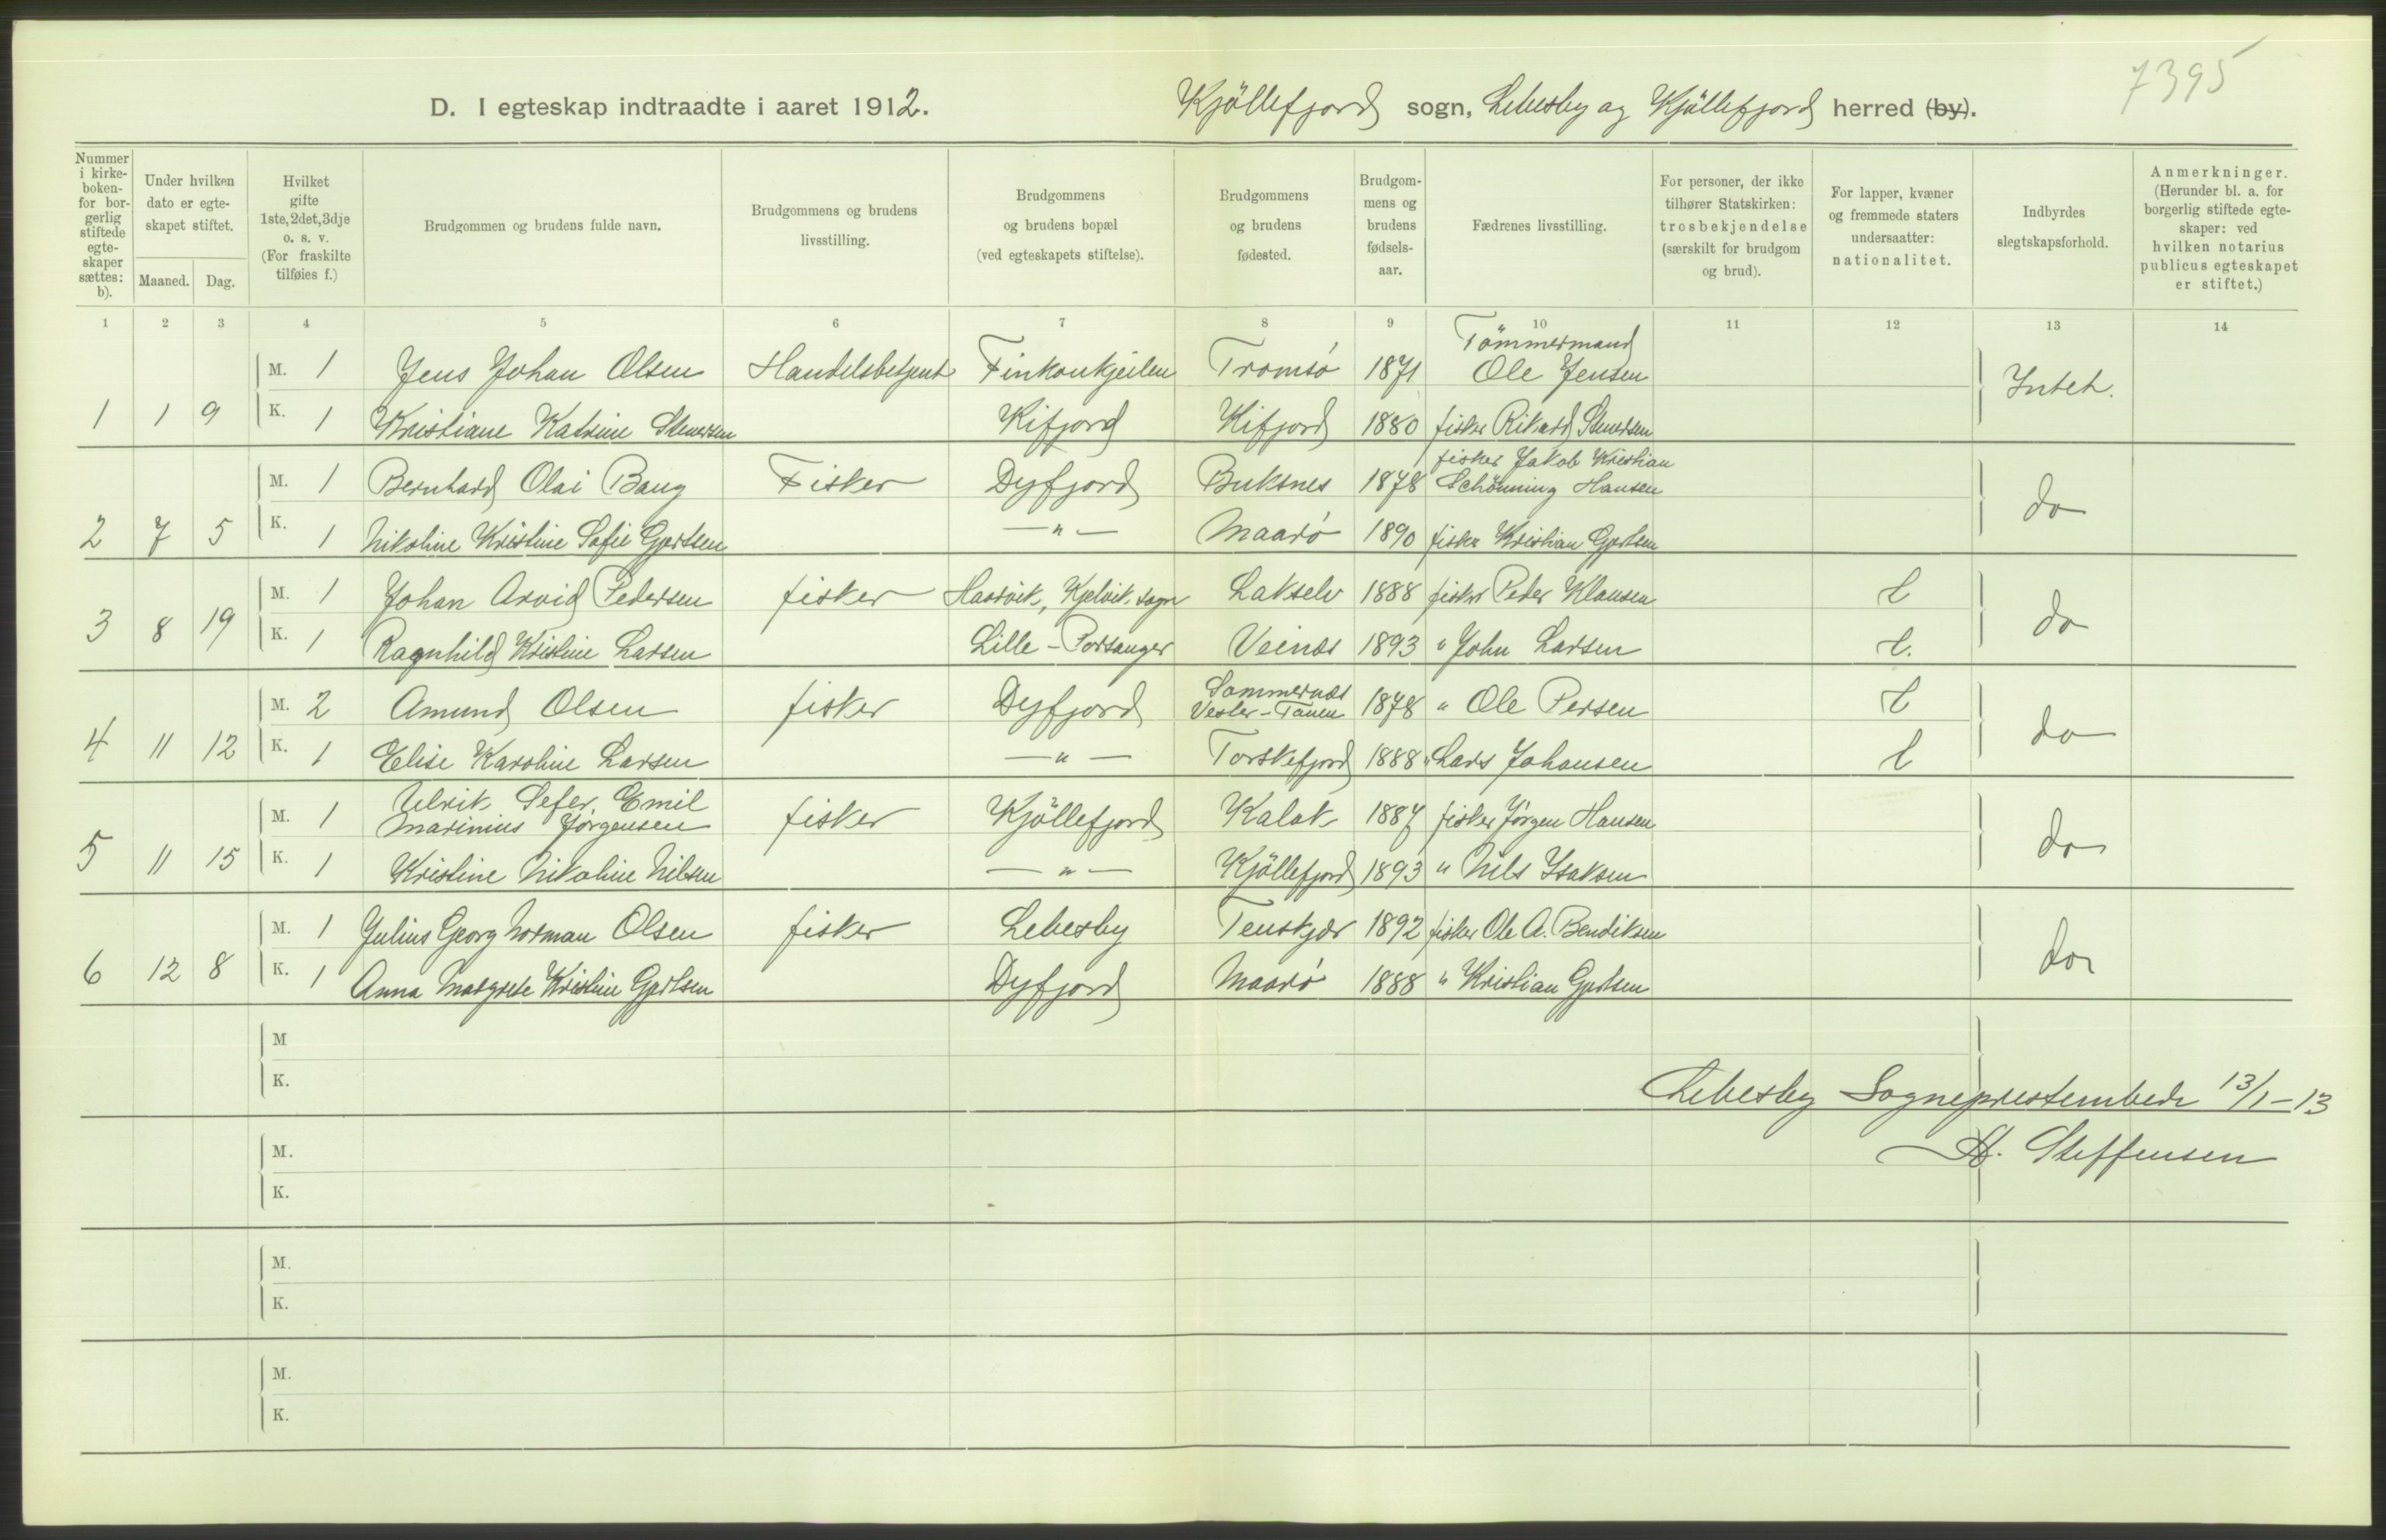 7395
D. I egteskap indtraadte i aaret 1912. Kjöllefjord sogn, Lebesby og Kjöllefjord herred (by).
Nummer i kirke-boken- for bor-gerlig stiftede egte-skaper sættes: b).
Under hvilken dato er egte-skapet stiftet.
Maaned. Dag.
Hvilket gifte 1ste, 2det, 3dje o. s. v. (For fraskilte tilføies f.)
Brudgommen og brudens fulde navn.
Brudgommens og brudens livsstilling.
Brudgommens og brudens bopæl (ved egteskapets stiftelse).
Brudgommens og brudens fødested.
Brudgom-mens og brudens fødsels-aar.
Fædrenes livsstilling.
For personer, der ikke tilhører Statskirken: trosbekjendelse (særskilt for brudgom og brud).
For lapper, kvæner og fremmede staters undersaatter: nationalitet.
Indbyrdes slegtskapsforhold.
Anmerkninger. (Herunder bl. a. for borgerlig stiftede egte-skaper: ved hvilken notarius publicus egteskapet er stiftet.)
1 2 3 4 5 6 7 8 9 10 11 12 13 14
M. 1 Jens Johan Olsen Handelsbetjent Finkonkjeilen Tromsö 1871 Tömmermand Ole Jensen Intet.
1 1 9 K. 1 Kristiane Katrine Stenersen Kifjord Kifjord 1880 fisker Rikard Stenersen
M. 1 Bernhard Olai Bang Fisker Dyfjord Buksnes 1878 fisker Jakob Kristian Schönning Hansen do
2 7 5 K. 1 Nikoline Kristine Sofie Gjertsen — " — Maasö 1890 fisker Kristian Gjertsen
M. 1 Johan Arvid Pedersen fisker Haasvik, Kjelvik sogn Lakselv 1888 fisker Peder Klausen l do
3 8 19 K. 1 Ragnhild Kristine Larsen Lille-Porsanger Veines 1893 " John Larsen l.
M. 2 Amund Olsen fisker Dyfjord Sommernes Vester-Tanen 1878 " Ole Persen l do
4 11 12 K. 1 Elise Karoline Larsen — " — Torskefjord 1888 " Lars Johansen l
M. 1 Ulrik Peter Emil Marinius Jörgensen fisker Kjöllefjord Kalak 1887 fisker Jörgen Hansen do
5 11 15 K. 1 Kristine Nikoline Nilsen — " — Kjöllefjord 1893 " Nils Isaksen
M. 1 Julius Georg Norman Olsen fisker Lebesby Tenskjær 1892 fisker Ole A. Bendiksen do
6 12 8 K. 1 Anna Margrete Kristine Gjertsen Dyfjord Maasö 1888 " Kristian Gjertsen
M
K.
Lebesby Sogneprestembede 13/1-13
M.
Steffensen
K.
M.
K.
M.
K.